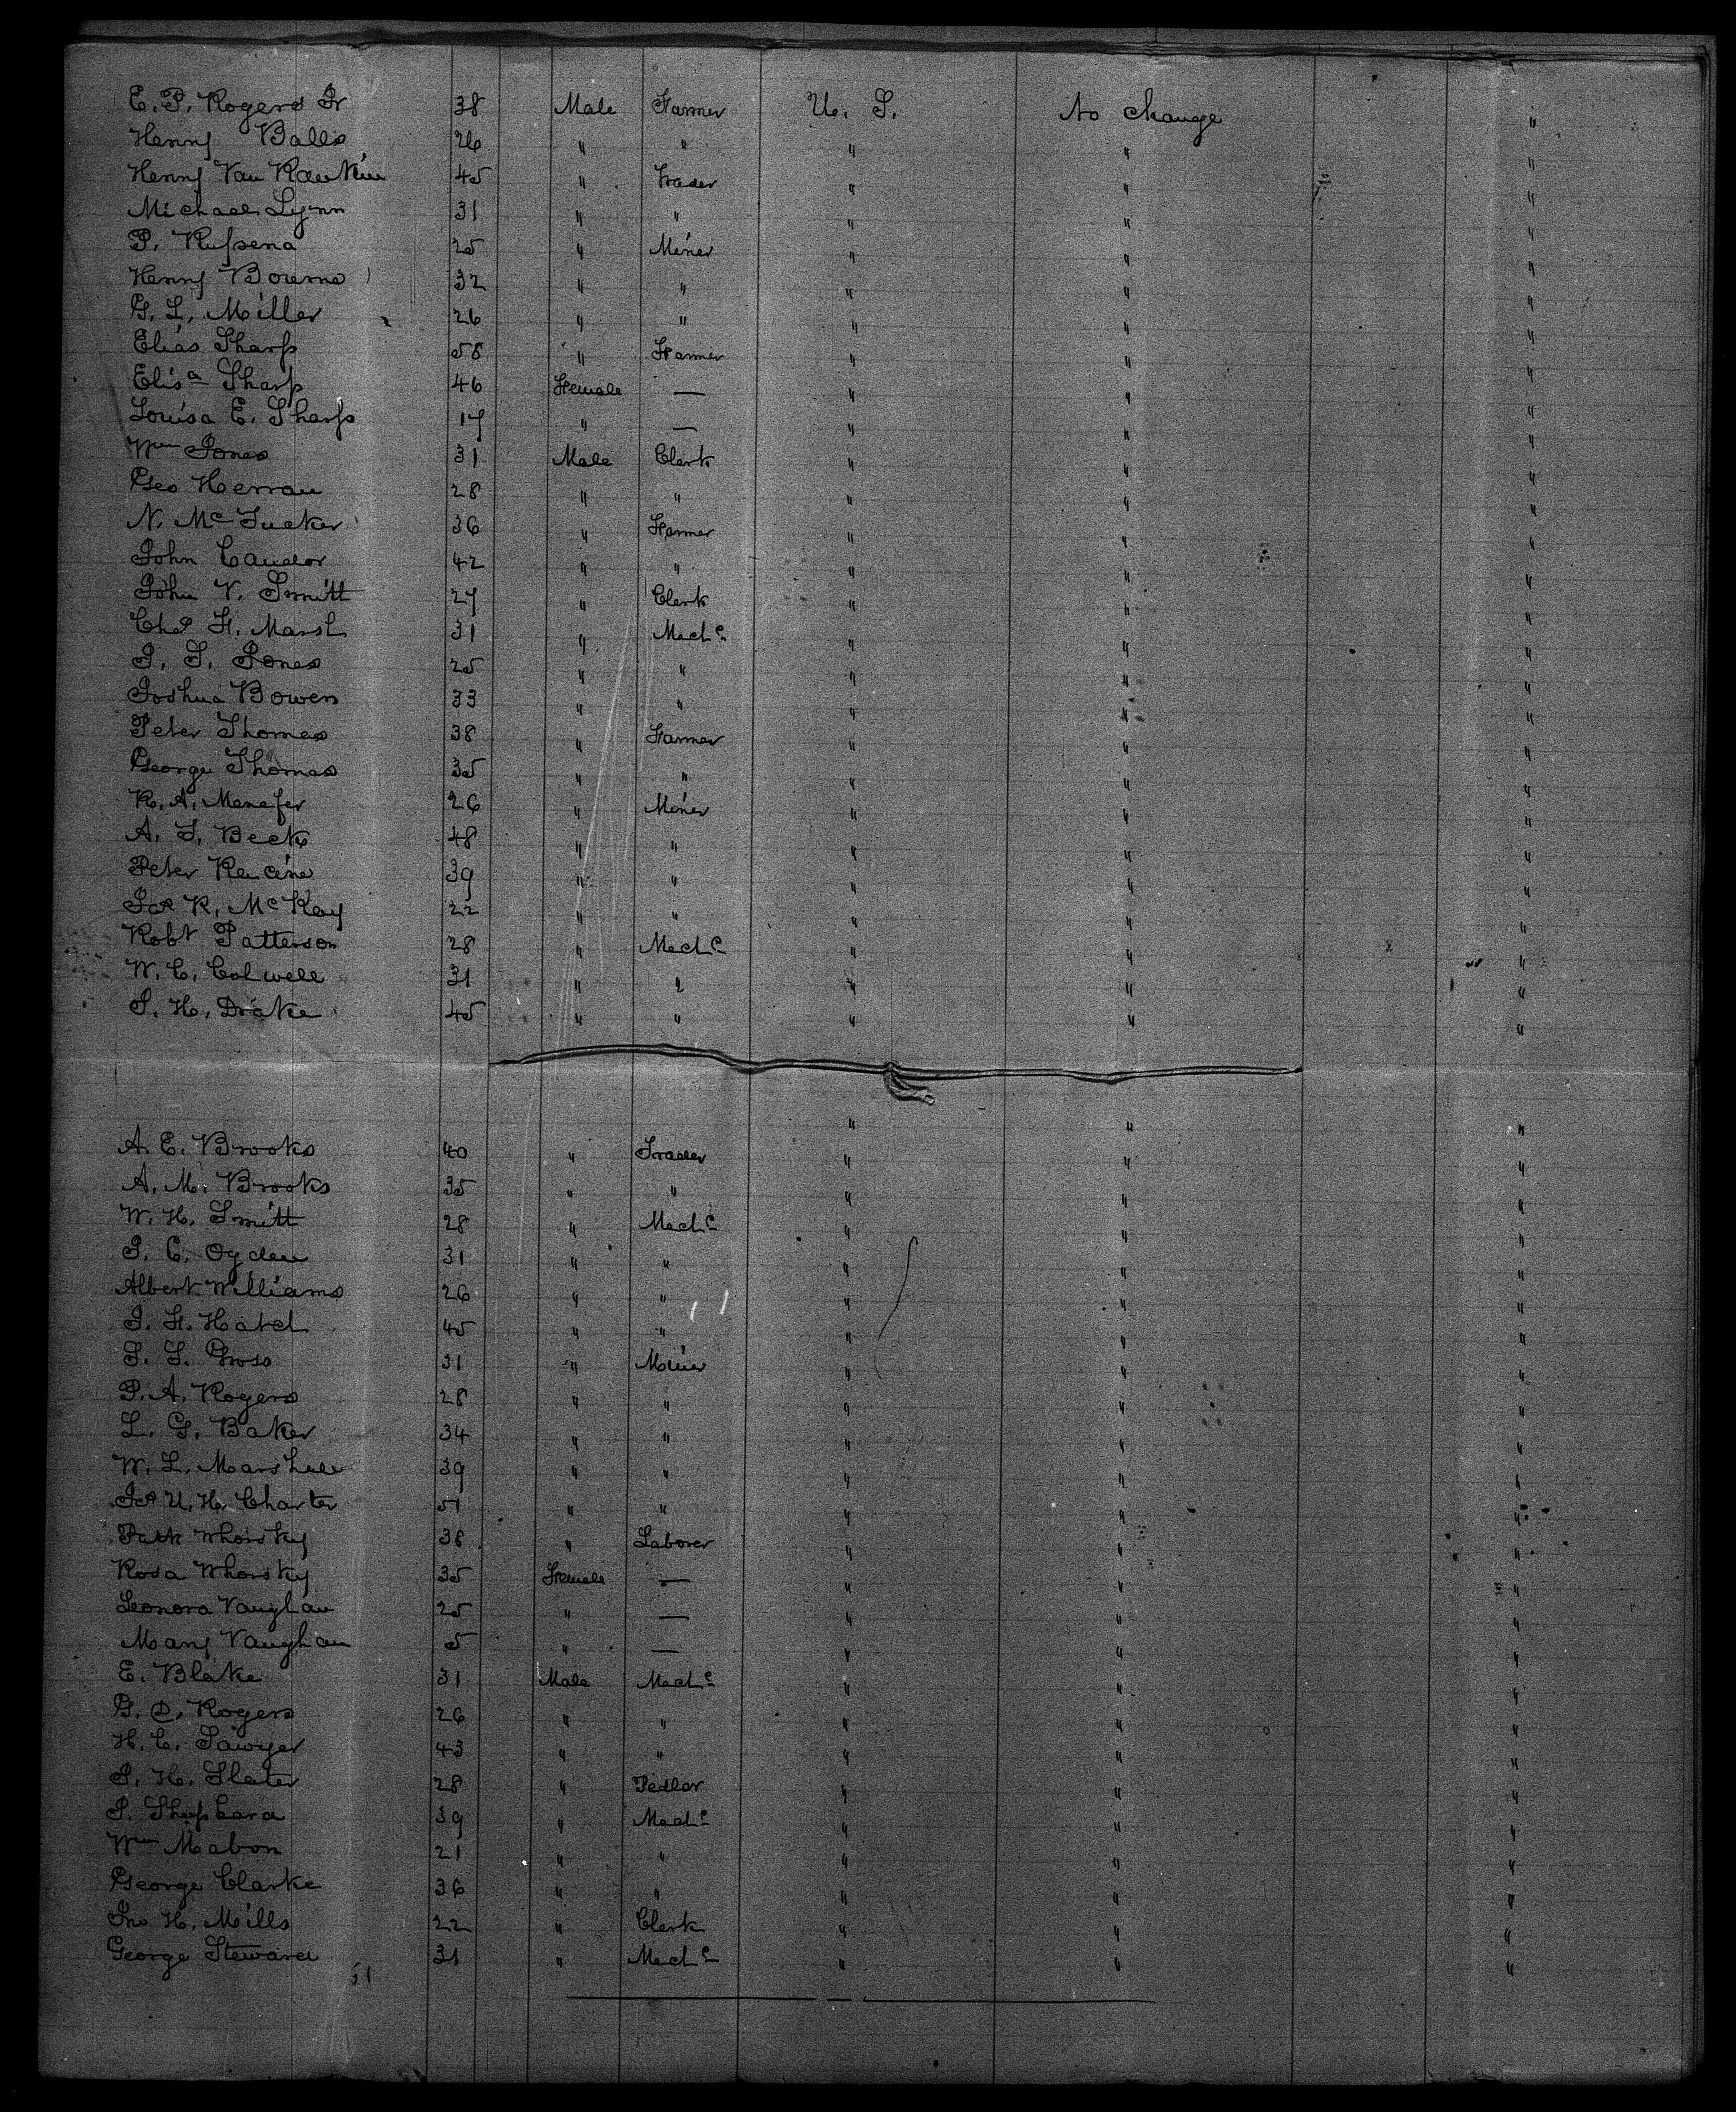 E. P. Rogers Jr 38 Male Farmer U. S. No change "
Henry Balls 26 " " " " "
Henry Van 45 " Trader " " "
Michael Lynn 31 " " " " "
P. 25 " Miner " " "
Henry Bourne 32 " " " " "
G. L. Miller 26 " " " " "
Elias Sharp 58 " Farmer " " "
Elisa Sharp 46 Female — " " "
Louisa E. Sharp 17 " — " " "
Wm Jones 31 Male Clerk " " "
Geo Herran 28 " " " " "
N. Mc Tucker 36 " Farmer " " "
John Caudor 42 " " " " "
John V. Smitt 27 " Clerk " " "
Chas F. Marsh 31 " Mech c " " "
J. S. Jones 25 " " " " "
Joshua Bowen 33 " " " " "
Peter Thomas 38 " Farmer " " "
George Thomas 35 " " " " "
R. A. Menefer 26 " Miner " " "
A. T. Beck 48 " " " " "
Peter 39 " " " " "
Jas R. Mc Kay 22 " " " " "
Robt Patterson 28 " Mech c " " "
W. C. Colwell 31 " " " " "
S. H. Drake 45 " " " " "
" " "
A. E. Brooks 40 " Trader " " "
A. M. Brooks 35 " " " " "
W. H. Smitt 28 " Mech c " " "
J. C. Ogden 31 " " " " "
Albert Williams 26 " " " " "
J. F. Hatch 45 " " " " "
S. S. Gross 31 " Miner " " "
P. A. Rogers 28 " " " " "
L. G. Baker 34 " " " " "
W. L. Marshall 39 " " " " "
Jas U. H. Charter 51 " " " " "
Patk Whorsky 38 " Laborer " " "
Rosa Whorsky 35 Female — " " "
Leonora Vaughan 25 " — " " "
Mary Vaughan 5 " — " " "
E. Blake 31 Male Mech c " " "
G. D. Rogers 26 " " " " "
H. C. Sawyer 43 " " " " "
J. H. Slater 28 " Pedler " " "
S. Shephard 39 " Mech c " " "
Wm Mabon 21 " " " " "
George Clarke 36 " " " " "
Jno H. Mills 22 " Clerk " " "
George Steward 31 " Mech c " " "
51